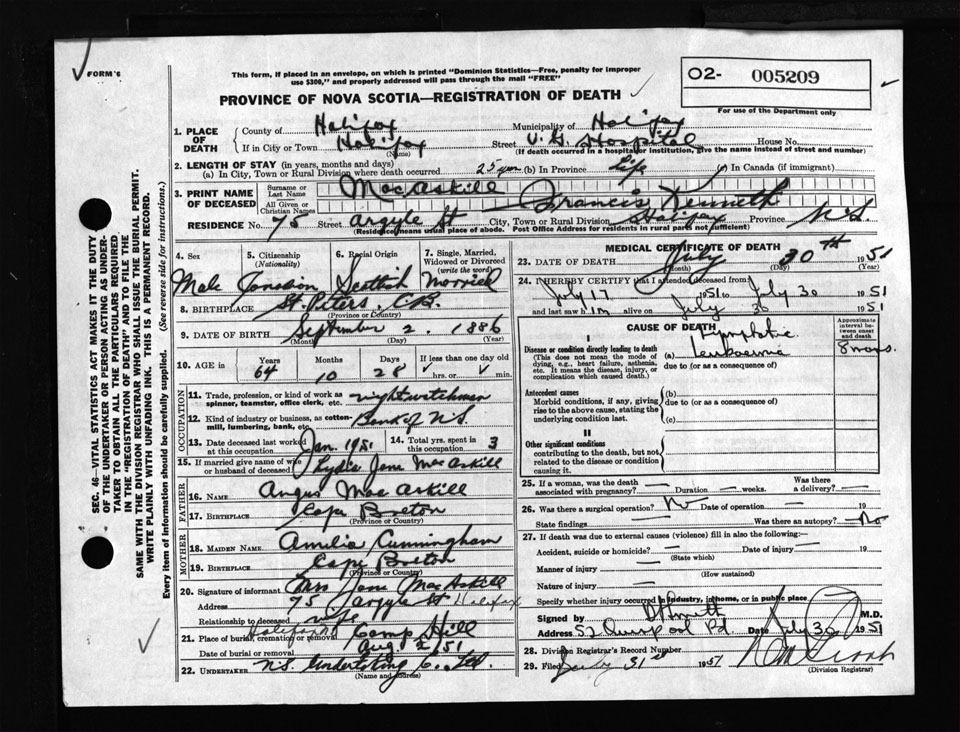 FORM 6
This form, if placed in an envelope, on which is printed "Dominion Statistics—Free, penalty for improper
use $300," and properly addressed will pass through the mail "FREE"
O2- 005209
For use of the Department only
PROVINCE OF NOVA SCOTIA—REGISTRATION OF DEATH
1. PLACE OF DEATH
County of Halifax Municipality of Halifax
If in City or Town Halifax Street V. G. Hospital House No.
(Name) (If death occurred in a hospital or institution, give the name instead of street and number)
2. LENGTH OF STAY (in years, months and days)
(a) In City, Town or Rural Division where death occurred 25 yrs (b) In Province Life (c) In Canada (if immigrant)
3. PRINT NAME OF DECEASED
Surname or Last Name MacAskill
All Given or Christian Names Francis Kenneth
RESIDENCE No. 75 Street Argyle St City, Town or Rural Division Halifax Province N.S.
(Residence means usual place of abode. Post Office Address for residents in rural parts not sufficient)
4. Sex
5. Citizenship (Nationality)
6. Racial Origin
7. Single, Married, Widowed or Divorced (write the word)
Male Canadian Scottish Married
8. BIRTHPLACE St. Peters, C.B.
(Province or Country)
9. DATE OF BIRTH September 2, 1886
(Month) (Day) (Year)
10. AGE in Years Months Days If less than one day old
64 10 28 hrs. or min.
OCCUPATION
11. Trade, profession, or kind of work as spinner, teamster, office clerk, etc. nightwatchman
12. Kind of industry or business, as cotten-mill, lumbering, bank, etc. Bank of N.S.
13. Date deceased last worked at this occupation Jan. 1951
14. Total yrs. spent in this occupation 3
15. If married give name of wife or husband of deceased Lydia Jane MacAskill
FATHER
16. NAME Angus MacAskill
17. BIRTHPLACE Cape Breton
(Province or Country)
MOTHER
18. MAIDEN NAME. Amelia Cunningham
19. BIRTHPLACE Cape Breton
(Province or Country)
20. Signature of informant Mrs Jane MacAskill
Address 75 Argyle St Halifax
Relationship to deceased wife
21. Place of burial, cremation or removal Halifax Camp Hill
Date of burial or removal Aug 2/51
22. UNDERTAKER N.S. Undertaking Co. Ltd.
(Name and address)
MEDICAL CERTIFICATE OF DEATH
23. DATE OF DEATH July 30th 1951
(Month) (Day) (Year)
24. I HEREBY CERTIFY that I attended deceased from
July 17 1951 to July 30 1951
and last saw him alive on July 30 1951
CAUSE OF DEATH
Approximate interval between onset and death
I
Disease or condition directly leading to death
(This does not mean the mode of dying, e.g., heart failure, asthenia, etc. It means the disease, injury, or complication which caused death.)
(a) Lymphatic Leukaemia 8 mos.
due to (or as a consequence of)
Antecedent causes
Morbid conditions, if any, giving rise to the above cause, stating the underlying condition last.
(b)
due to (or as a consequence of)
(c)
II
Other significant conditions
contributing to the death, but not related to the disease or condition causing it.
25. If a woman, was the death associated with pregnancy? — Duration — weeks. Was there a delivery? —
26. Was there a surgical operation? No Date of operation 19
State findings — Was there an autopsy? No
27. If death was due to external causes (violence) fill in also the following:—
Accident, suicide or homicide? — Date of injury — 19
(State which)
Manner of injury —
(How sustained)
Nature of injury —
Specify whether injury occurred in industry, in home, or in public place
Signed by M.D.
Address Quinpool Rd. Date July 30 1951
28. Division Registrar's Record Number
29. Filed July 31st 1951
(Division Registrar)
SEC. 46—VITAL STATISTICS ACT MAKES IT THE DUTY
OF THE UNDERTAKER OR PERSON ACTING AS UNDER-
TAKER TO OBTAIN ALL THE PARTICULARS REQUIRED
IN THE "REGISTRATION OF DEATH" AND TO FILE THE
SAME WITH THE DIVISION REGISTRAR WHO SHALL ISSUE THE BURIAL PERMIT.
WRITE PLAINLY WITH UNFADING INK. THIS IS A PERMANENT RECORD.
Every item of information should be carefully supplied. (See reverse side for instructions.)